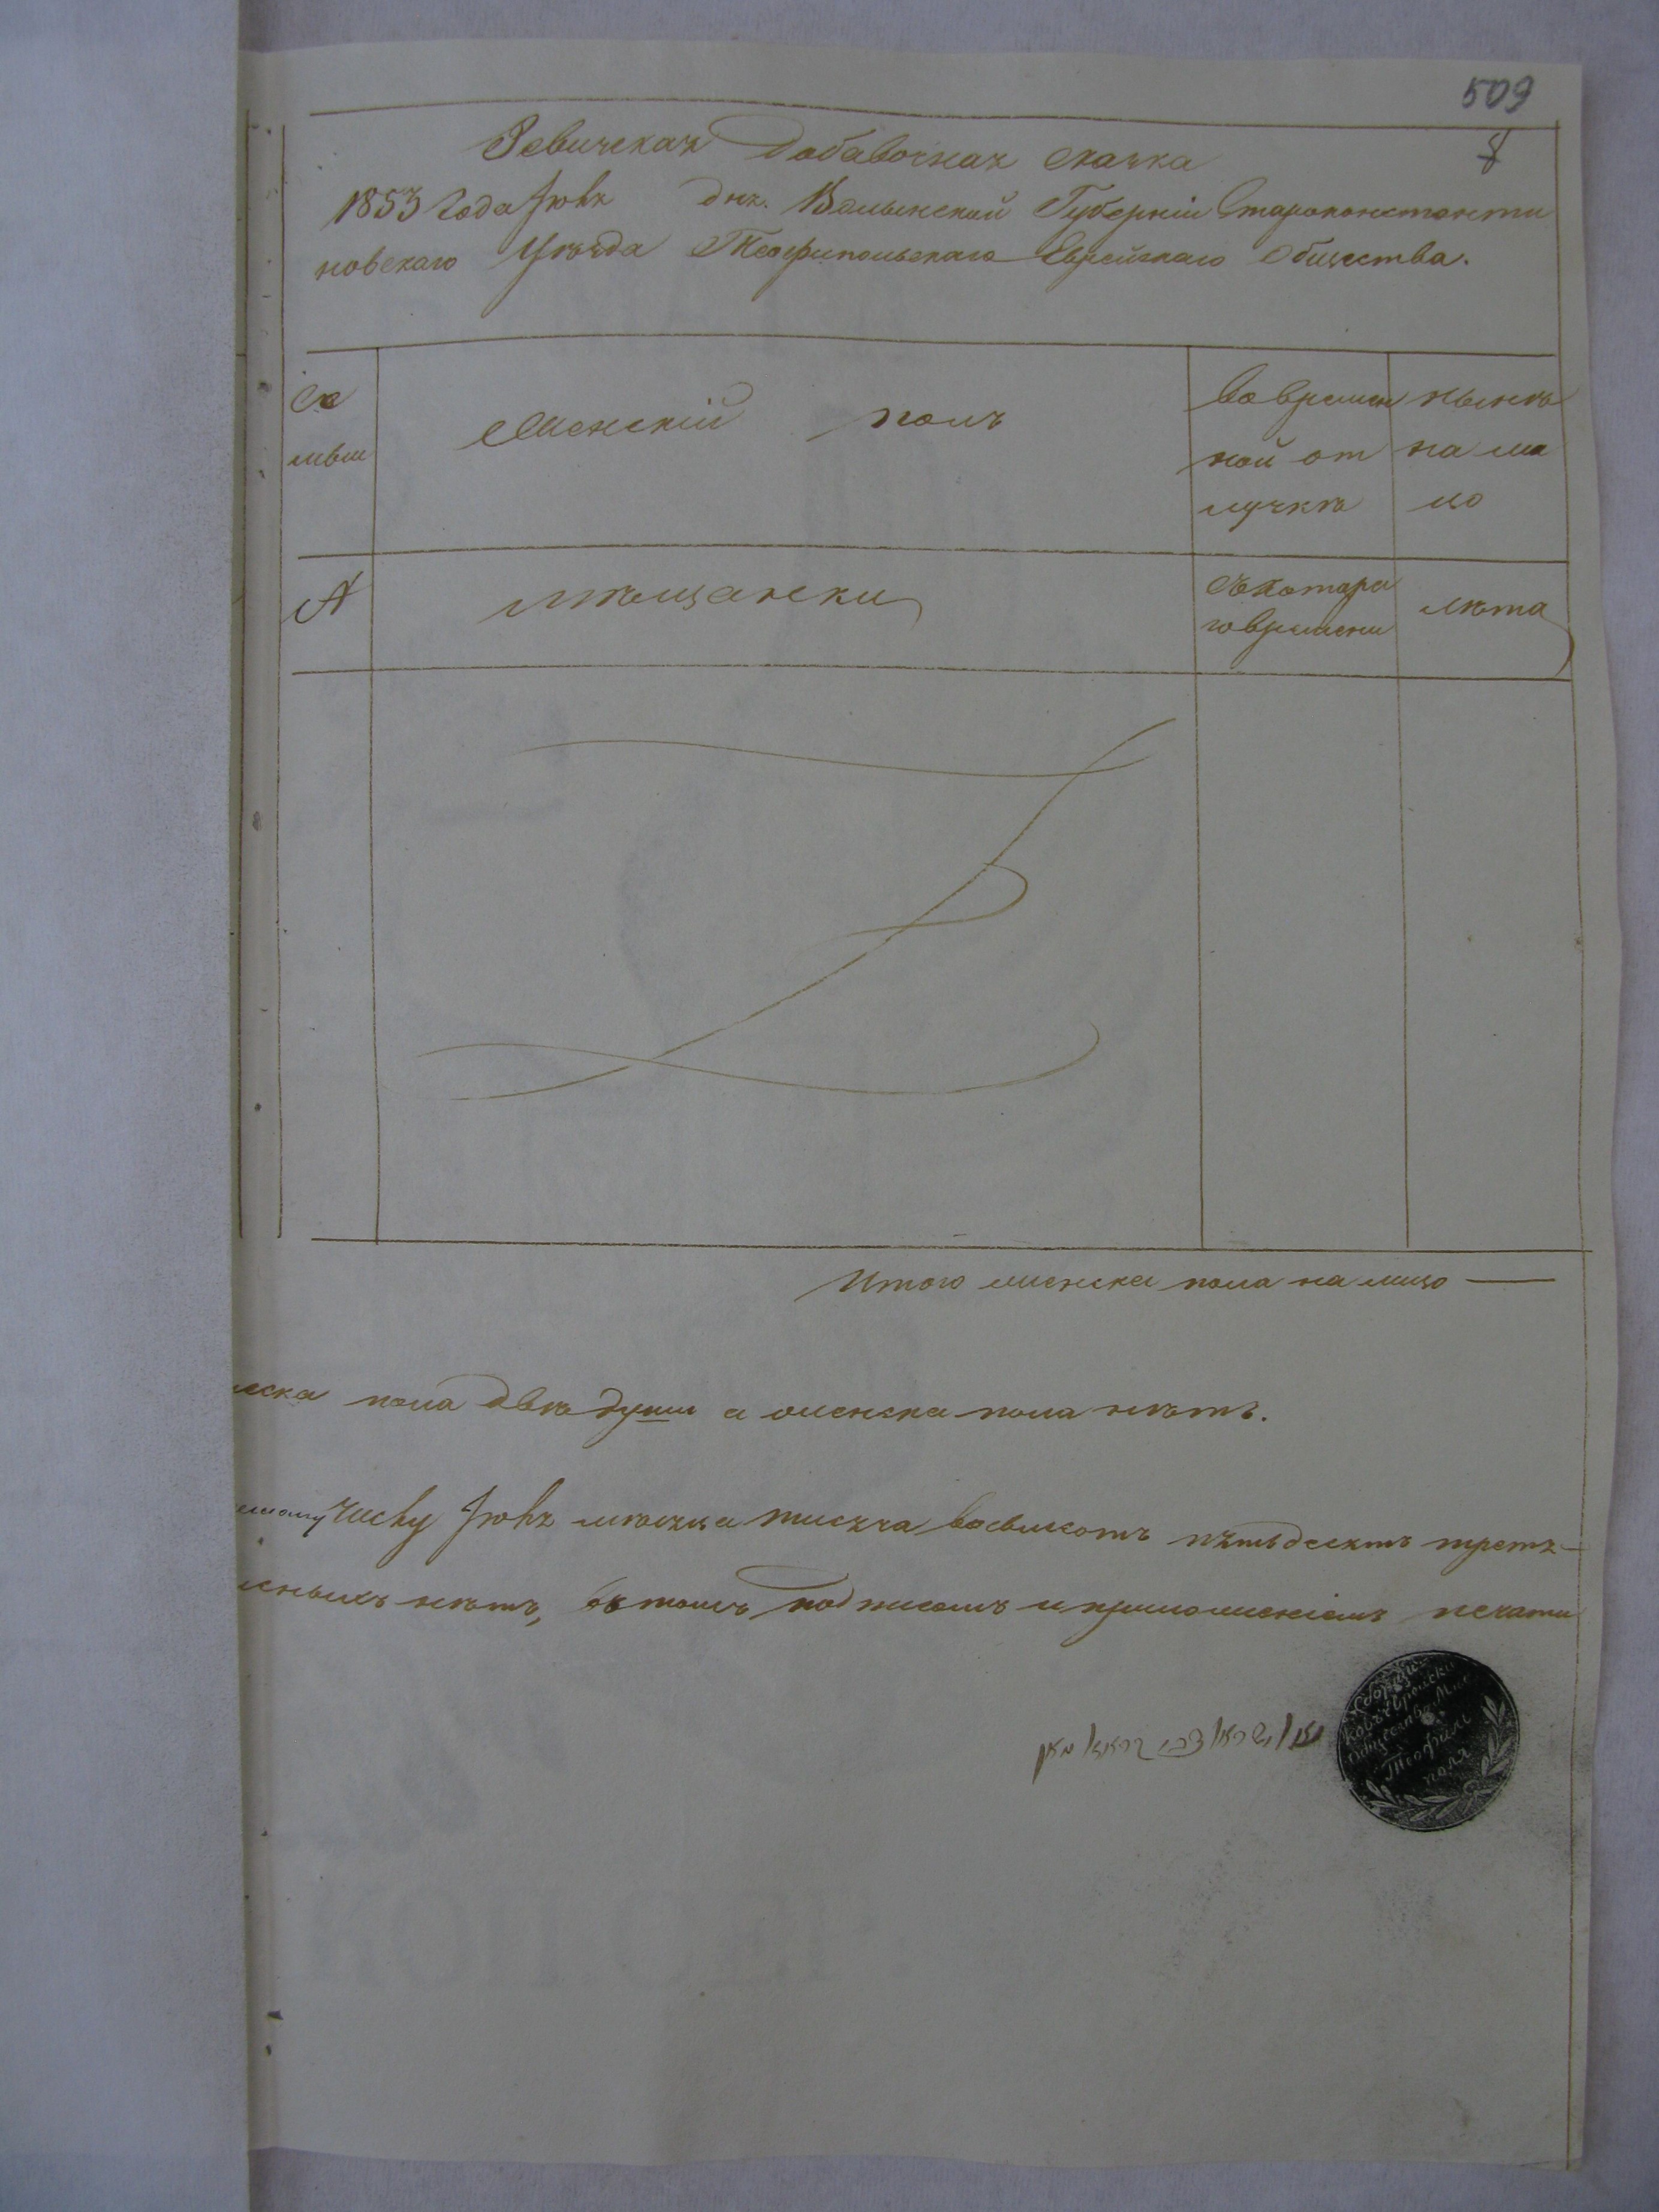 509
8
Ревизская Добавочная сказка
1853 Года Іюля дня. Волынской Губерніи Староконстанти
новскаго Уѣзда Теофипольскаго Еврейскаго Общества.
Се
мьи
Женскій полъ
Во времен
ной от
лучкѣ
нынѣ
на ли
цо
А
мѣщански
Съ котора
го времени
лѣта
Итого женска пола на лицо —
жеска пола двѣ души а женска пола нѣтъ.
Числу Іюля мѣсяца тисяча восвисотъ пятьдесятъ третя
нѣтъ, въ томъ подписомъ и приложеніемъ печати
Сборщи
ковъ Еврейска
Общества М.
Теофиль
поля